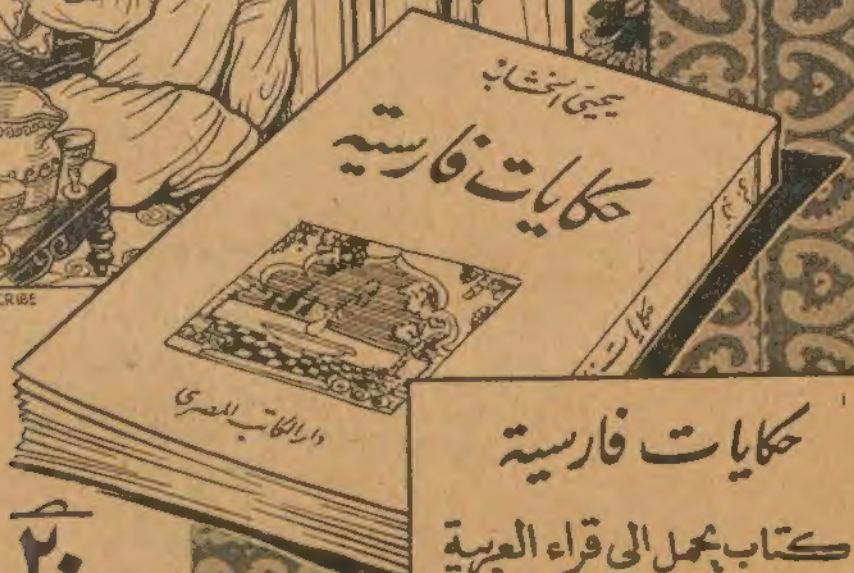 يحيى الخشاب
حكايات فارسية
دار الكاتب المصرى
حكايات
CRIBE
٢٠
حكايات فارسية
كتاب يحمل الى قراء العربية